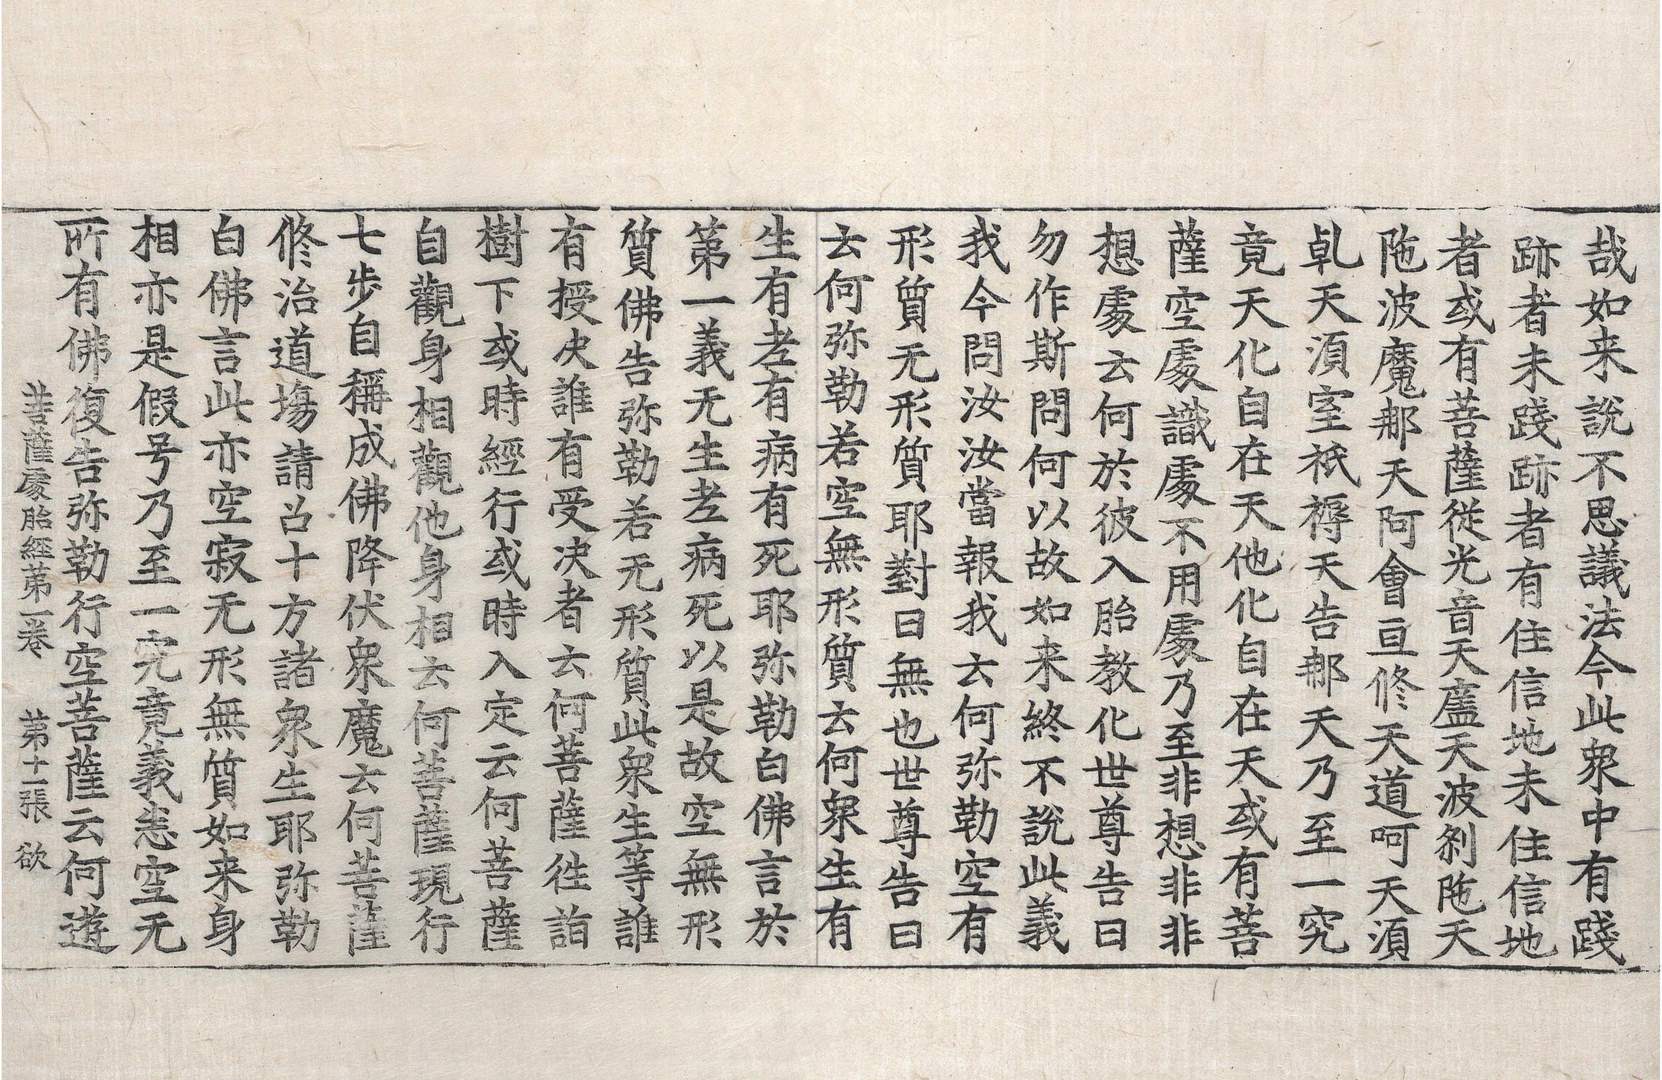 哉如来說不思議法今此衆中有踐
跡者未踐跡者有住信地未住信地
者或有菩薩從光音天廬天波剎陁天
陁波魔郍天阿會亘修天道呵天湏
乹天湏室祇褥天告郍天乃至一究
竟天化自在天他化自在天或有菩
薩空處識處不用處乃至非想非非
想處云何於彼入胎教化世尊告曰
勿作斯問何以故如来終不說此義
我今問汝汝當報我云何弥勒空有
形質无形質耶對曰無也世尊告曰
云何弥勒若空無形質云何衆生有
生有老有病有死耶弥勒白佛言於
第一義无生老病死以是故空無形
質佛告弥勒若无形質此衆生等誰
有授决誰有受决者云何菩薩徃詣
樹下或時經行或時入定云何菩薩
自觀身相觀他身相云何菩薩現行
七步自稱成佛降伏衆魔云何菩薩
修治道塲請召十方諸衆生耶弥勒
白佛言此亦空寂无形無質如来身
相亦是假号乃至一究竟義悉空无
所有佛復告弥勒行空菩薩云何遊
菩薩處胎經第一卷　第十一張　欲